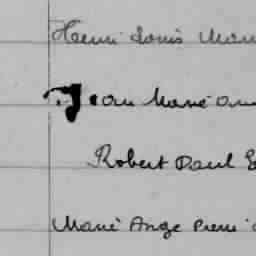 Henri Louis Marie
Jean Marie
Robert Paul
Marie Ange Pierre